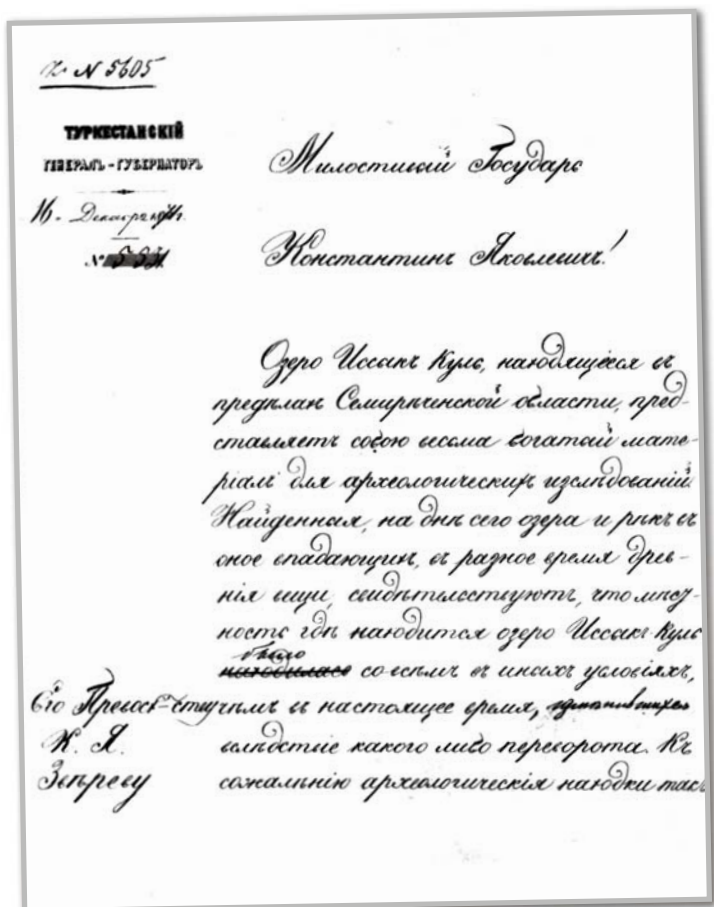 № 5605
ТУРКЕСТАНСКІЙ
ГЕНЕРАЛЪ-ГУБЕРНАТОРЪ
16. Декабря
№
Милостивый Государь
Константинъ Яковлевичъ!
Озеро Иссыкъ Куль, находящееся въ
предѣлахъ Семирѣченской области, пред-
ставляетъ собою весьма богатый мате-
ріалъ для археологическихъ изслѣдованій.
Найденныя, на днѣ сего озера и рѣкъ въ
оное впадающихъ, въ разное время древ-
нія вещи, свидѣтельствуютъ, что мѣст-
ность гдѣ находится озеро Иссыкъ-Куль
было
находилась совсѣмъ въ иныхъ условіяхъ,
чѣмъ въ настоящее время,
вслѣдствіе какого либо переворота. Къ
сожалѣнію археологическія находки такъ
Его Превосх-ству
К. Я.
Звѣреву